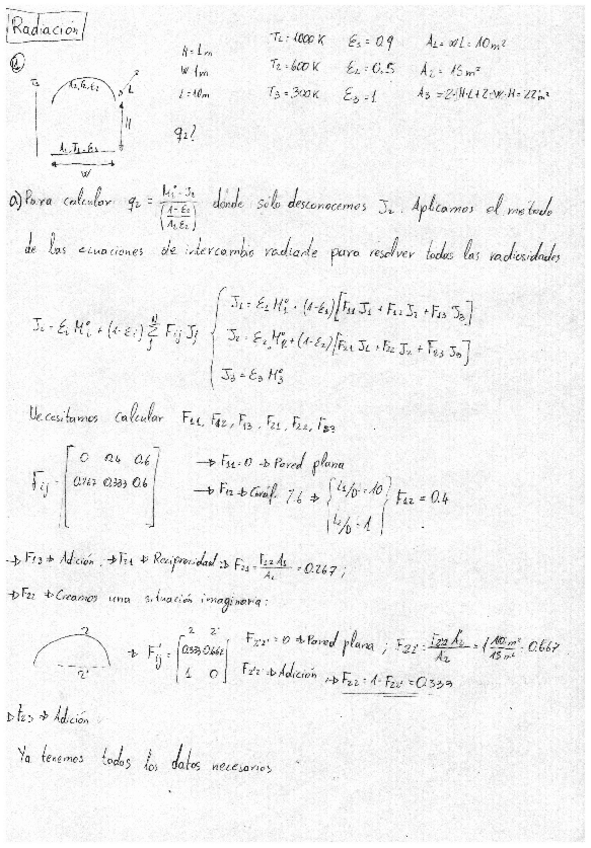 Radiación
H = 1m T1 = 1000K ε1 = 0.9 A1 = WL = 10m²
W 1m T2 = 600K ε2 = 0.5 A2 = 15m²
L = 10m T3 = 300K ε3 = 1 A3 = 2·H·L + 2·W·H = 22m²
T3
A2, T2, ε2
L
H
A1, T1 = ε1
W
q2?
a) Para calcular q2 = (M2° - J2) / ((1-ε2)/(A2 ε2)) donde sólo desconocemos J2. Aplicamos el método
de las ecuaciones de intercambio radiante para resolver todas las radiosidades
Ji = εi Mi° + (1-εi) Σ Fij Jj
J1 = ε1 M1° + (1-ε1)[F11 J1 + F12 J2 + F13 J3]
J2 = ε2 M2° + (1-ε2)[F21 J1 + F22 J2 + F23 J3]
J3 = ε3 M3°
Necesitamos calcular F11, F12, F13, F21, F22, F23
Fij =
0 0.4 0.6
0.267 0.333 0.6
→ F11 = 0 → Pared plana
→ F12 → 7.6 ⇒ { L1/D = 10 L2/D = 1 } F12 = 0.4
→ F13 → Adición. → F21 → Reciprocidad → F21 = F12 A1 / A2 = 0.267;
→ F22 → Creamos una situación imaginaria:
2
2'
2 2'
→ F'ij = [0.333 0.662
1 0]
F2'2' = 0 → Pared plana; F22' = F2'2 A2' / A2 = 1 10m² / 15m² = 0.667
F22 → Adición → F22 = 1 - F22' = 0.333
→ F23 → Adición
Ya tenemos todos los datos necesarios